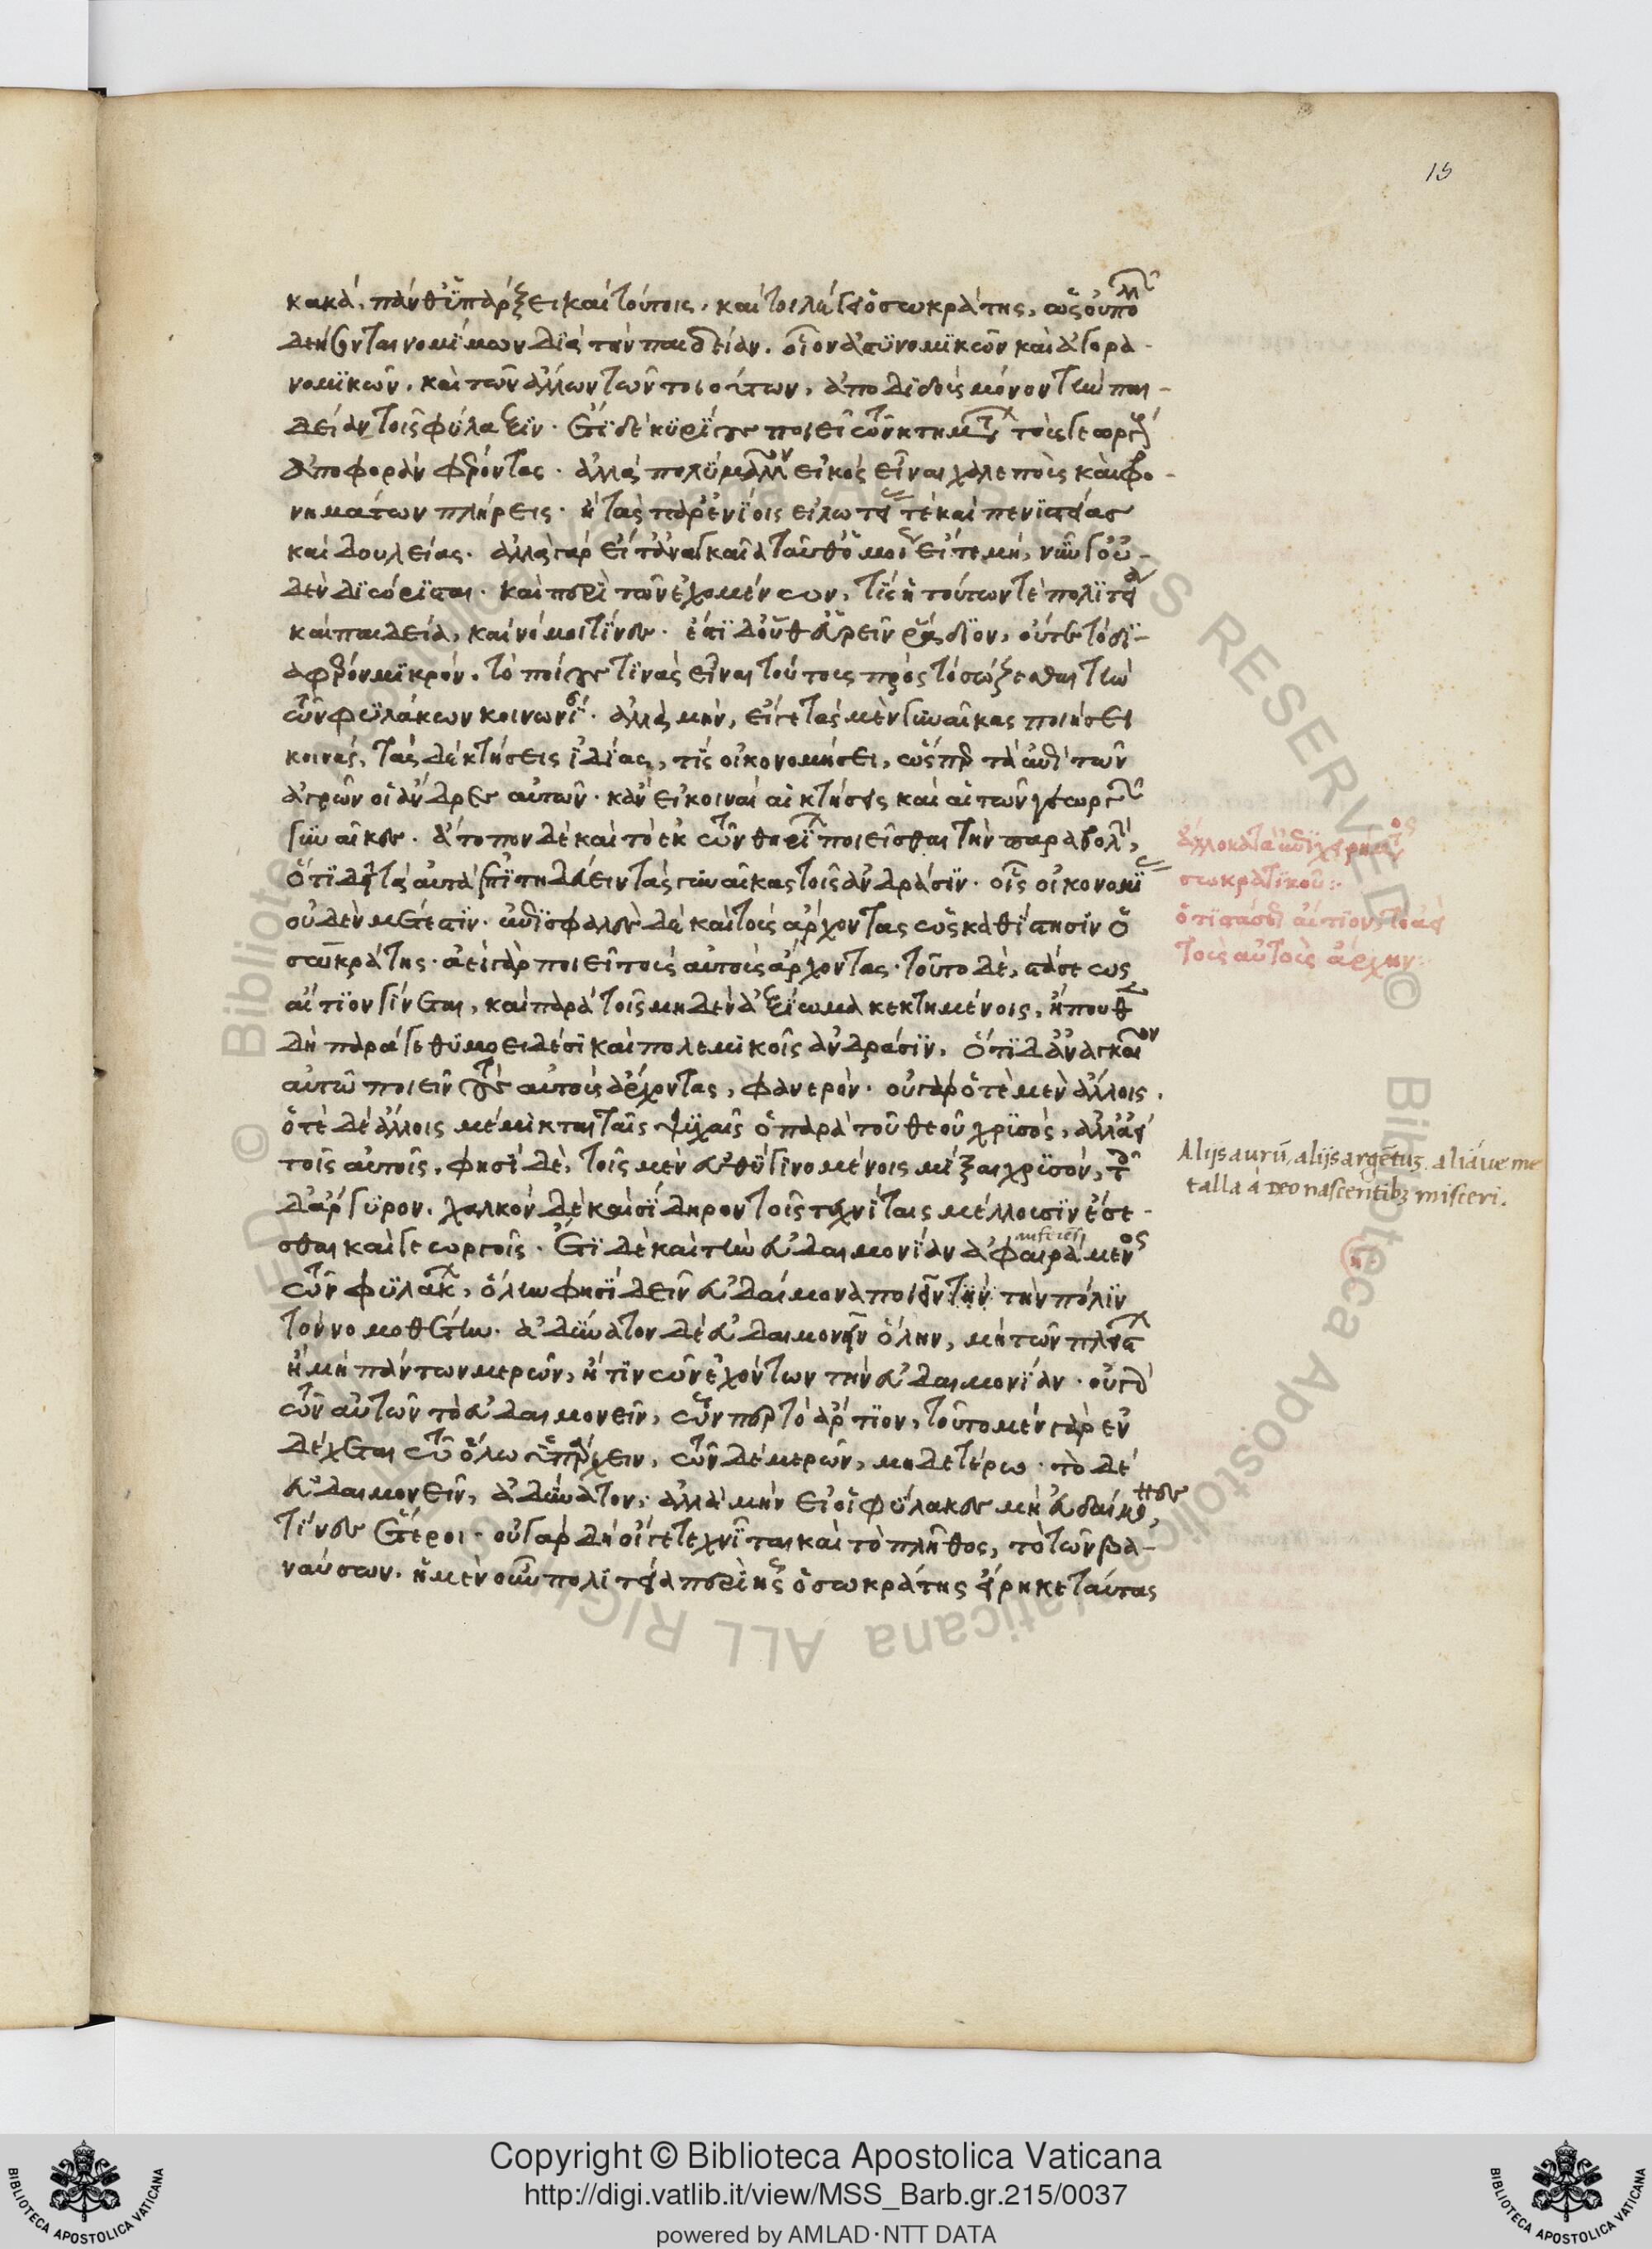 15
κακὰ, πάνθ' ὑπάρξει καὶ τούτοις. καίτοι λέγει ὁ σωκράτης, ὡς οὐ πολλῶν
δεήσονται νομίμων διὰ τὴν παιδείαν. οἷον ἀστυνομικῶν καὶ ἀγορα-
νομικῶν. καὶ τῶν ἄλλων τῶν τοιούτων, ἀποδιδοὺς μόνον τὴν παι-
δείαν τοῖς φύλαξιν. ἔτι δὲ κυρίους ποιεῖ τῶν κτημάτων τοὺς γεωργοὺς
ἀποφορὰν φέροντας. ἀλλὰ πολὺ μᾶλλον εἰκὸς εἶναι χαλεποὺς καὶ φρο-
νημάτων πλήρεις. ἢ τὰς παρ' ἐνίοις εἱλωτείας τε καὶ πενεστείας
καὶ δουλείας. ἀλλὰ γὰρ εἴτ' ἀναγκαῖα ταῦθ' ὁμοίως εἴτε μὴ, νῦν γ' οὐ-
δὲν διώρισται. καὶ περὶ τῶν ἐχομένων, τίς ἡ τούτων τε πολιτεία
καὶ παιδεία, καὶ νόμοι τίνες. ἔστι δ' οὔθ' εὑρεῖν ῥάδιον, οὔτε τὸ δι-
αφέρον μικρόν. τὸ ποίους τινὰς εἶναι τούτους πρὸς τὸ σώζεσθαι τὴν
τῶν φυλάκων κοινωνίαν. ἀλλὰ μὴν, εἴγε τὰς μὲν γυναῖκας ποιήσει
κοινάς, τὰς δὲ κτήσεις ἰδίας, τίς οἰκονομήσει, ὥσπερ τὰ ἐπὶ τῶν
ἀγρῶν οἱ ἄνδρες αὐτῶν. κἂν εἰ κοιναὶ αἱ κτήσεις καὶ αἱ τῶν γεωργῶν
γυναῖκες. ἄτοπον δὲ καὶ τὸ ἐκ τῶν θηρίων ποιεῖσθαι τὴν παραβολὴν,
ὅτι δεῖ τὰ αὐτὰ ἐπιτηδεύειν τὰς γυναῖκας τοῖς ἀνδράσιν. οἷς οἰκονομίας
οὐδὲν μέτεστιν. ἐπισφαλὲς δὲ καὶ τοὺς ἄρχοντας ὡς καθίστησιν ὁ
σωκράτης. ἀεὶ γὰρ ποιεῖ τοὺς αὐτοὺς ἄρχοντας. τοῦτο δὲ, στάσεως
αἴτιον γίνεται, καὶ παρὰ τοῖς μηδὲν ἀξίωμα κεκτημένοις, ἤπουθεν
δὴ παρά γε θυμοειδέσι καὶ πολεμικοῖς ἀνδράσιν. ὅτι δ' ἀναγκαῖον
αὐτῷ ποιεῖν τοὺς αὐτοὺς ἄρχοντας, φανερόν. οὐ γὰρ ὁτὲ μὲν ἄλλοις,
ὁτὲ δὲ ἄλλοις μέμικται ταῖς ψυχαῖς ὁ παρὰ τοῦ θεοῦ χρυσὸς, ἀλλ' ἀεὶ
τοῖς αὐτοῖς. φησὶ δὲ, τοῖς μὲν εὐθὺ γινομένοις μίξαι χρυσόν, τοῖς
δ' ἄργυρον. χαλκὸν δὲ καὶ σίδηρον τοῖς τεχνίταις μέλλουσιν ἔσε-
σθαι καὶ γεωργοῖς. ἔτι δὲ καὶ τὴν εὐδαιμονίαν ἀφαιρούμενος
τῶν φυλάκων, ὅλην φησὶ δεῖν εὐδαίμονα ποιεῖν τὴν πόλιν
τὸν νομοθέτην. ἀδύνατον δὲ εὐδαιμονεῖν ὅλην, μὴ τῶν πλείστων
ἢ μὴ πάντων μερῶν, ἢ τινῶν ἐχόντων τὴν εὐδαιμονίαν. οὐ γὰρ
τῶν αὐτῶν τὸ εὐδαιμονεῖν, ὧνπερ τὸ ἄρτιον, τοῦτο μὲν γὰρ ἐν
δέχεται τῷ ὅλῳ ὑπάρχειν, τῶν δὲ μερῶν, μηδετέρῳ. τὸ δὲ
εὐδαιμονεῖν, ἀδύνατον. ἀλλὰ μὴν εἰ οἱ φύλακες μὴ εὐδαίμονες,
τίνες ἕτεροι. οὐ γὰρ δὴ οἵ γε τεχνῖται καὶ τὸ πλῆθος, τὸ τῶν βα-
ναύσων. ἡ μὲν οὖν πολιτεία περὶ ἧς ὁ σωκράτης εἴρηκε ταύτας
σωκρατικοῦ:
τοὺς αὐτοὺς ἄρχειν:
Alijs aurũ, alijs argẽtuz, aliáue me
talla à deo nascentibz misceri.
Copyright © Biblioteca Apostolica Vaticana
http://digi.vatlib.it/view/MSS_Barb.gr.215/0037
powered by AMLAD·NTT DATA
BIBLIOTECA APOSTOLICA VATICANA
BIBLIOTECA APOSTOLICA VATICANA